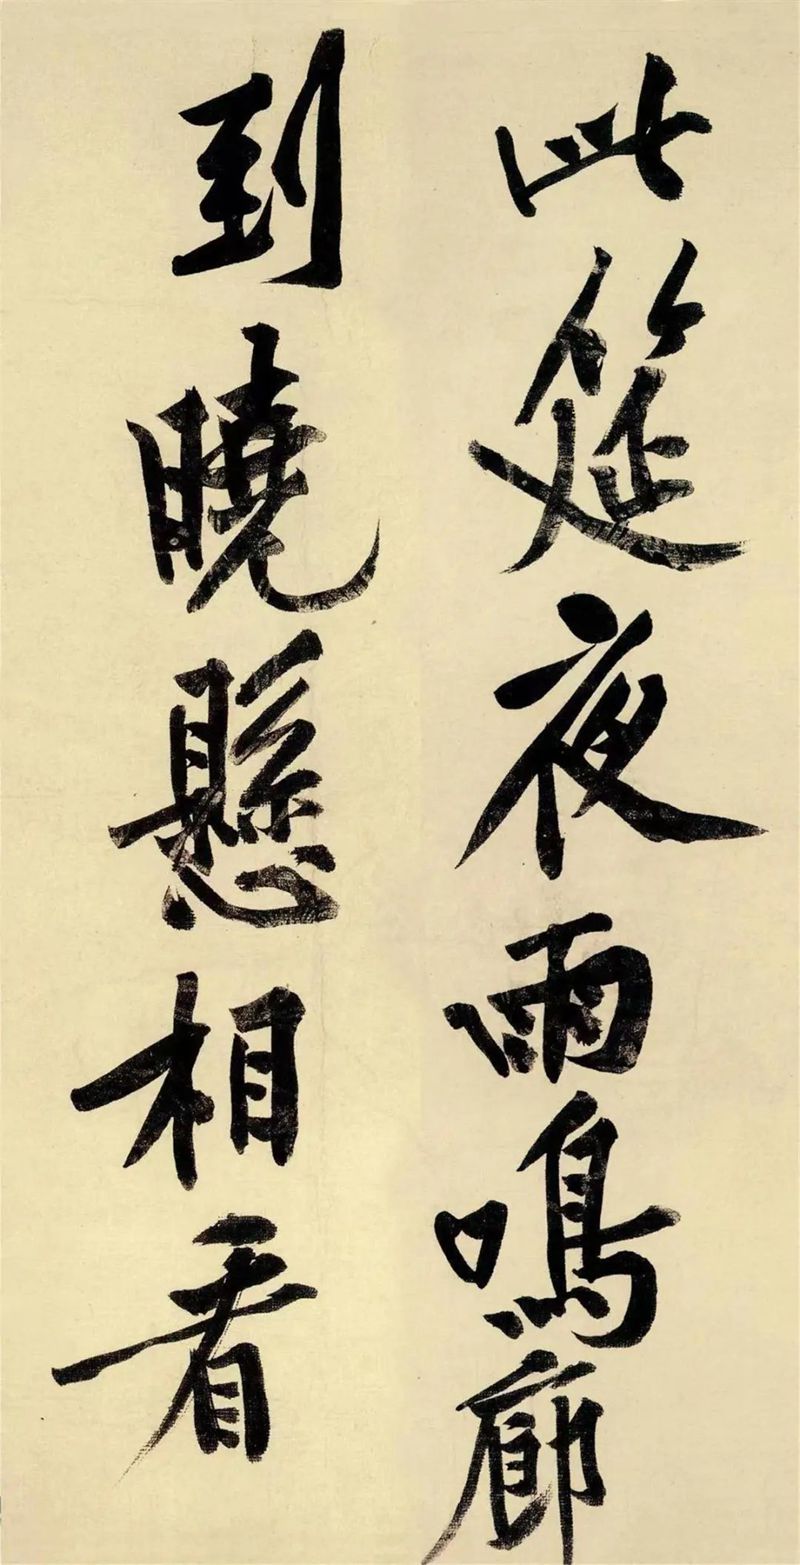 此筵夜雨鳴廊
到曉懸相看